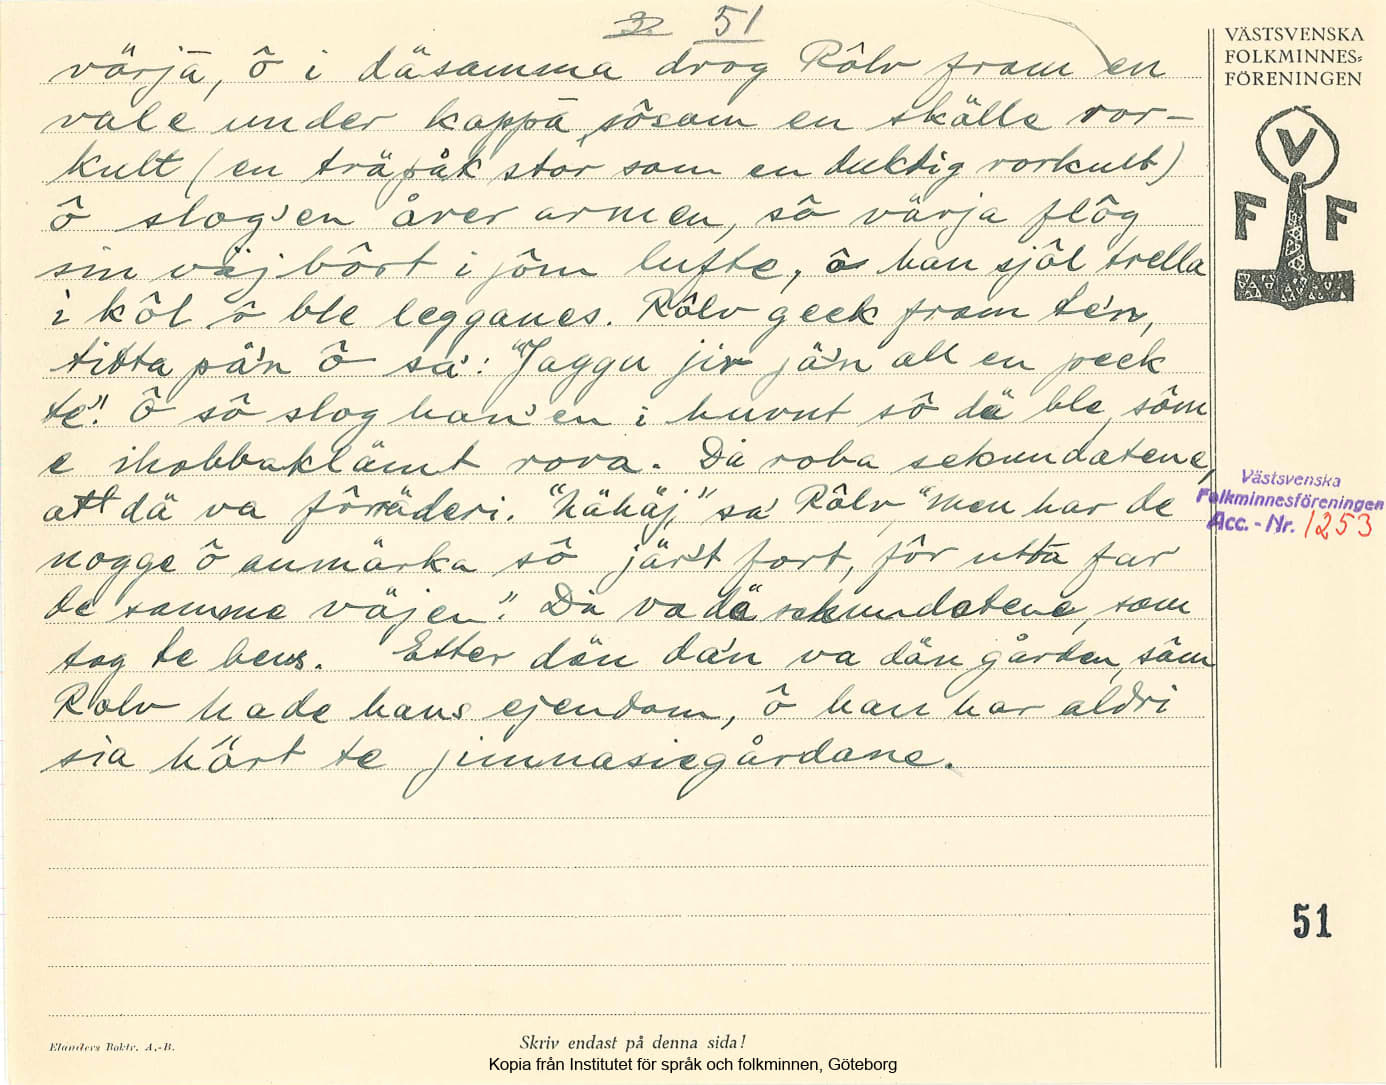 51
värjä, ô i däsamma drog Rôlv fram en
vale under kappä, sôsom en skälle rov-
kult (en träpåk stor som en duktig rovkult)
ô slog'en åver armen, sô värja flôg
sin väj bôrt i jôm lufte, ô han sjôl trella
i kôl ô ble legganes. Rôlv geck fram te'n,
titta pä'n ô sa': "Jaggu jiv jä'n all en peck
te"! Ô sô slog han'en i huvut sô dä ble sôm
e ihobbaklämt rova. Då roba sekundatene,
att dä va fôrräderi. "Hähäj," sa' Rôlv, "men har de
nogge ô anmärka sô jär't fort, fôr utta far
de samma väjen". Då va dä sekundatene, som
tog te bens. Etter dän da'n va dän gården, sôm
Rolv hade hans ejendom, ô han har aldri
sia hört te jimnasiegårdane.
VÄSTSVENSKA
FOLKMINNES-
FÖRENINGEN
V
F F
Västsvenska
Folkminnesföreningen
Acc. - Nr. 1253
51
Elanders Boktr. A.-B.
Skriv endast på denna sida!
Kopia från Institutet för språk och folkminnen, Göteborg